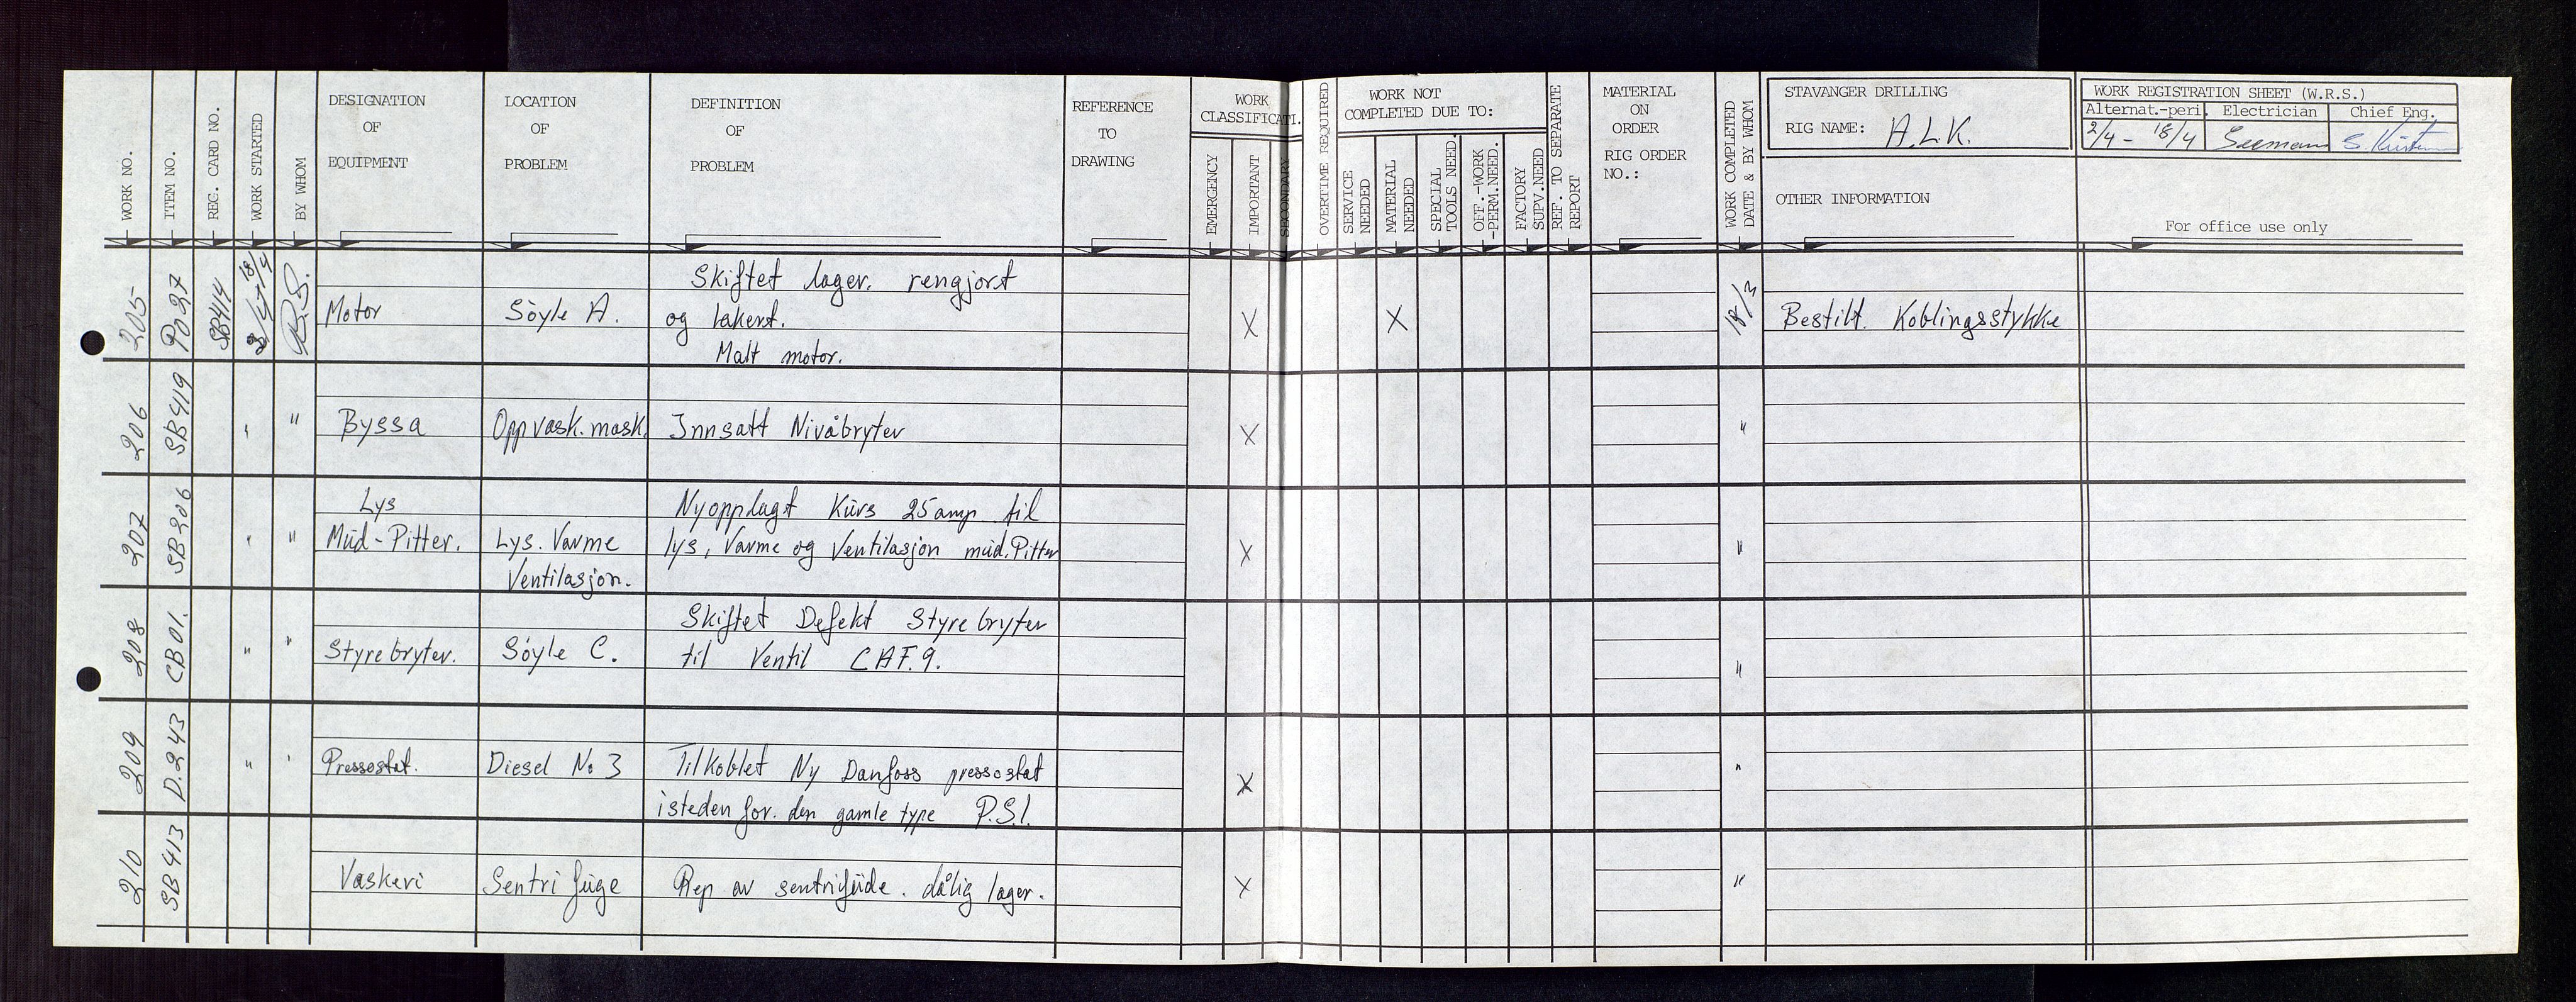 WORK NO.
ITEM NO.
REC. CARD NO.
WORK STARTED
BY WHOM
DESIGNATION
OF
EQUIPMENT
LOCATION
OF
PROBLEM
DEFINITION
OF
PROBLEM
REFERENCE
TO
DRAWING
WORK
CLASSIFICATI.
EMERGENCY
IMPORTANT
SECONDARY
OVERTIME REQUIRED
WORK NOT
COMPLETED DUE TO:
SERVICE
NEEDED
MATERIAL
NEEDED
SPECIAL
TOOLS NEED.
OFF.-WORK
-PERM.NEED.
FACTORY
SUPV.NEED
REF. TO SEPARATE
REPORT
MATERIAL
ON
ORDER
RIG ORDER
NO.:
WORK COMPLETED
DATE & BY WHOM
STAVANGER DRILLING
RIG NAME: A.L.K.
OTHER INFORMATION
WORK REGISTRATION SHEET (W.R.S.)
Alternat.-peri. Electrician Chief Eng.
2/4 - 18/4 Seemann
For office use only
205 PO 27 SB414 18/4
Motor
Söyle A.
Skiftet lager. rengjort
og lakert.
Malt motor.
X X
18/3
Bestilt. Koblingsstykke
206 SB 419 " "
Byssa
Oppvask.mask.
Innsatt Nivåbryter
X "
207 SB 206 " "
Lys
Mud-Pitter.
Lys. Varme
Ventilasjon.
Nyopplagt Kurs 25amp til
lys, Varme og Ventilasjon mud.Pitter
X "
208 CB 01. " "
Styrebryter.
Söyle C.
Skiftet Defekt Styrebryter
til Ventil CAF.9.
"
209 D.243 " "
Pressostat.
Diesel No 3
Tilkoblet Ny Danfoss pressostat
isteden for. den gamle type P.S.I.
X "
210 SB 413
Vaskeri
Sentrifuge
Rep av sentrifude. dålig lager.
X "